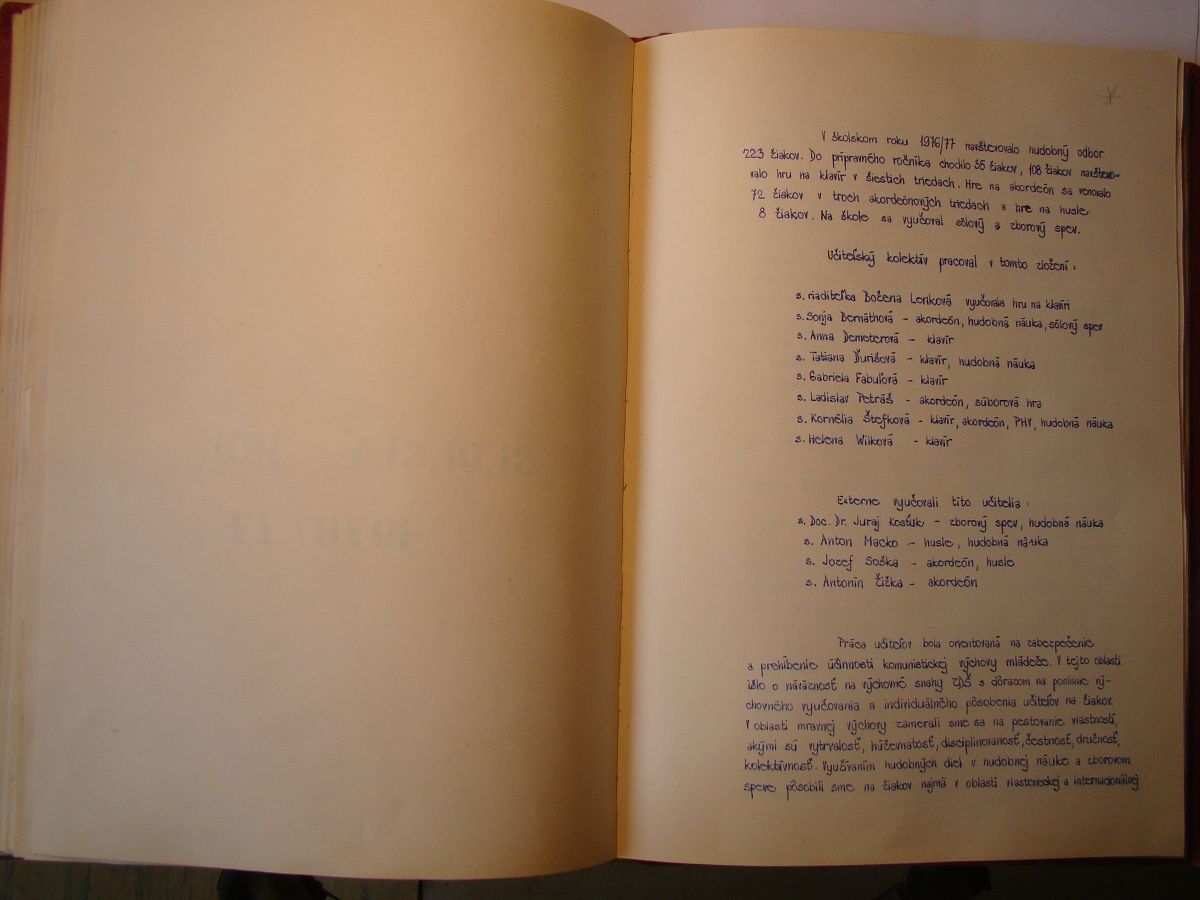 V školskom roku 1976/77 navšterovalo hudobný odbor
223 žiakov. Do prípravného ročníka chodilo 35 žiakov, 108 žiakov navštevo-
valo hru na klavír v šiestich triedach. Hre na akordeón sa venovalo
72 žiakov v troch akordeónových triedach a hre na husle
8 žiakov. Na škole sa vyučoval sólový a zborový spev.
Učiteľský kolektív pracoval v tomto zložení:
s. riaditeľka Božena Lonková vyučovala hru na klavíri
s. Sonja Bernáthová - akordeón, hudobná náuka, sólový spev
s. Anna Demeterová - klavír
s. Tatiana Ďurišová - klavír, hudobná náuka
s. Gabriela Fabuľová - klavír
s. Ladislav Petráš - akordeón, súborová hra
s. Kornélia Štefková - klavír, akordeón, PHV, hudobná náuka
s. Helena Wilková - klavír
Externe vyučovali títo učitelia:
s. Doc. Dr. Juraj Kosťuk - zborový spev, hudobná náuka
s. Anton Macko - husle, hudobná náuka
s. Jozef Soška - akordeón, husle
s. Antonín Čižka - akordeón
Práca učiteľov bola orientovaná na zabezpečenie
a prehĺbenie účinnosti komunistickej výchovy mládeže. V tejto oblasti
išlo o náväznosť na výchovné snahy ZDŠ s dôrazom na poslanie vý-
chovného vyučovania a individuálneho pôsobenia učiteľov na žiakov.
V oblasti mravnej výchovy zamerali sme sa na pestovanie vlastností,
akými sú vytrvalosť, húževnatosť, disciplinovanosť, čestnosť, družnosť,
kolektívnosť. Využívaním hudobných diel v hudobnej náuke a zborovom
speve pôsobili sme na žiakov najmä v oblasti vlasteneckej a internacionálnej